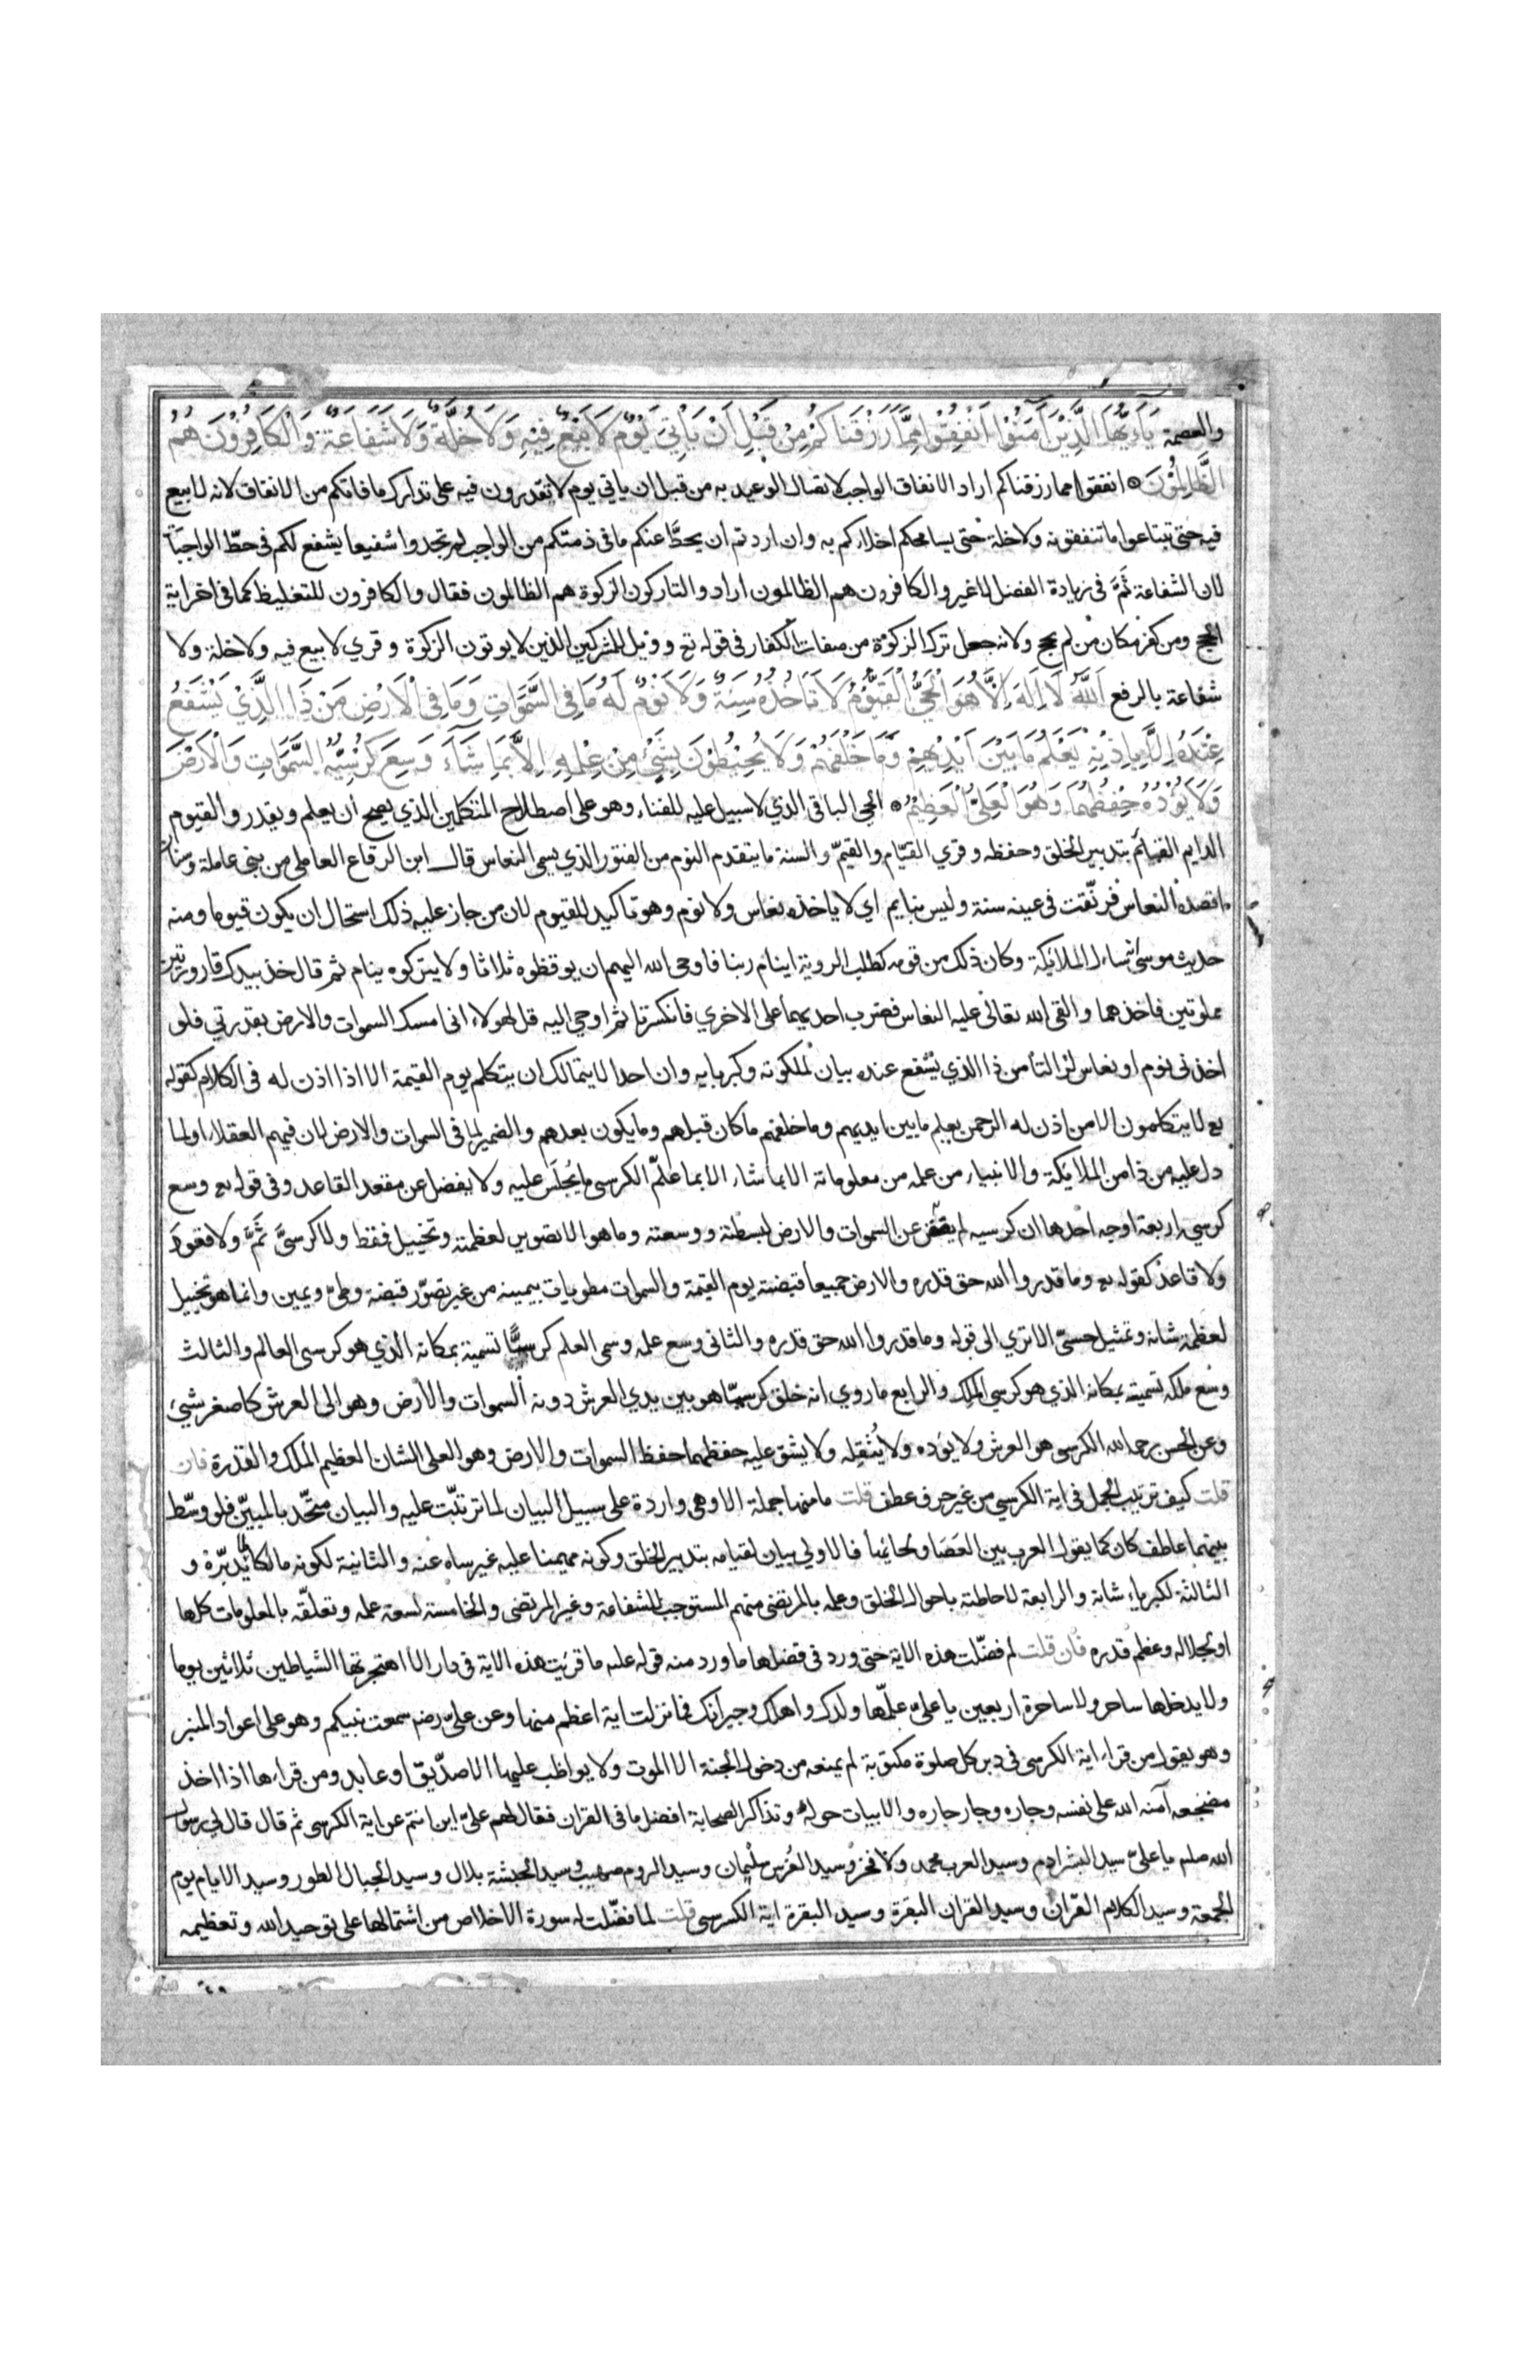 والعصمة يَآءَيُّهَا الَّذِيْنَ آمَنُوْا اَنْفِقُوْا مِمَّا رَزَقْنَاكُمْ مِنْ قَبْلِ اَنْ يَأْتِيَ يَوْمٌ لَا بَيْعٌ فِيْهِ وَلَا خُلَّةٌ وَلَا شَفَاعَةٌ وَالْكَافِرُوْنَ هُمُ
الظَّالِمُوْنَ انفقوا مما رزقناكم اراد الانفاق الواجب لاتصال الوعيد به من قبل ان ياتي يوم لا تقدرون فيه على تدارك ما فاتكم من الانفاق لانه لا بيع
فيه حتى تبتاعوا ما تنفقونه ولا خلة حتى يسامحكم اخلاءكم به وان اردتم ان يحطّ عنكم ما فى ذمتكم من الواجب لم تجدوا شفيعا يشفع لكم فى حطّ الواجبات
لان الشفاعة ثَمَّ فى زيادة الفضل لا غير والكافرون هم الظالمون اراد والتاركون الزكوة هم الظالمون فقال والكافرون للتغليظ كما فى اخر اية
الحج ومن كفر مكان من لم يحج ولانه جعل ترك الزكوة من صفات الكفار فى قوله تع وويل للمشركين الذين لا يوتون الزكوة وقري لا بيع فيه ولا خلة ولا
شفاعة بالرفع اَللّٰهُ لَا اِلٰهَ اِلَّا هُوَ الْحَيُّ الْقَيُّوْمُ لَا تَاْخُذُهُ سِنَةٌ وَلَا نَوْمٌ لَهُ مَا فِى السَّمٰوَاتِ وَمَا فِى الْاَرْضِ مَنْ ذَا الَّذِيْ يَشْفَعُ
عِنْدَهُ اِلَّا بِاِذْنِهِ يَعْلَمُ مَا بَيْنَ اَيْدِيْهِمْ وَمَا خَلْفَهُمْ وَلَا يُحِيْطُوْنَ بِشَيْءٍ مِنْ عِلْمِهِ اِلَّا بِمَا شَآءَ وَسِعَ كُرْسِيُّهُ السَّمٰوَاتِ وَالْاَرْضَ
وَلَا يَؤُدُهُ حِفْظُهُمَا وَهُوَ الْعَلِيُّ الْعَظِيْمُ الحي الباقى الذي لا سبيل عليه للفناء وهو على اصطلاح المتكلمين الذي يصح أن يعلم ويقدر والقيوم
الدايم القيائم بتدبير الخلق وحفظه وقري القيّام والقيّم والسنة ما يتقدم النوم من الفتور الذي يسمى النعاس قال ابن الرقاع العاملى من بنى عاملة وسنان
اقصده النعاس فرنّقت فى عينه سنة وليس بنايم اي لا ياخذه نعاس ولا نوم وهو تاكيد للقيوم لان من جاز عليه ذلك استحال ان يكون قيوما ومنه
حديث موسى انه سال الملائكة وكان ذلك من قومه كطلب الروية اينام ربنا فاوحى الله اليهم ان يوقظوه ثلاثا ولا يتركوه ينام ثم قال خذ بيدك قارورتين
مملوتين فاخذهما والقى الله تعالى عليه النعاس فضرب احديهما على الاخري فانكسرتا ثم اوحي اليه قل لهولاء انى امسك السموات والارض بقدرتي فلو
اخذنى نوم او نعاس لزالتا من ذا الذي يشفع عنده بيان لملكوته وكبريايه وان احدا لا يتمالك ان يتكلم يوم القيمة الا اذا اذن له فى الكلام كقوله
تع لا يتكلمون الا من اذن له الرحمن يعلم ما بين ايديهم وما خلفهم ما كان قبلهم وما يكون بعدهم والضمير لما فى السموات والارض لان فيهم العقلاء او لما
دل عليه من ذا من الملايكة والانبياء من علمه من معلوماته الا بما شاء الا بما علّم الكرسى ما يُجلَس عليه ولا يفضل عن مقعد القاعد وفى قوله تع وسع
كرسيه اربعة اوجه احدها ان كرسيه لم يضق عن السموات والارض لبسطته ووسعته وما هو الا تصوير لعظمته وتخييل فقط ولا كرسىَّ ثَمَّ ولا قعودَ
ولا قاعدَ كقوله تع وما قدروا الله حق قدره والارض جميعا قبضته يوم القيمة والسموات مطويات بيمينه من غير تصوّر قبضة وطىّ ويمين وانما هو تخييل
لعظمة شانه وتمثيل حسىّ الا تري الى قوله وما قدروا الله حق قدره والثانى وسع علمه وسمى العلم كرسيًّا تسمية بمكانه الذي هو كرسى العالم والثالث
وسع ملكه تسمية بمكانه الذي هو كرسي الملك والرابع ما روي انه خلق كرسيّا هو بين يدي العرش دونه السموات والأرض وهو الى العرش كاصغر شيء
وعن الحسن رحمه الله الكرسى هو العرش ولا يؤده ولا يُثقِله ولا يشق عليه حفظهما حفظ السموات والارض وهو العلى الشان العظيم الملك والقدرة فان
قلت كيف ترتيب الجمل فى اية الكرسي من غير حرف عطف قلت ما منها جملة الا وهى واردة على سبيل البيان لما ترتبّت عليه والبيان متّحد بالمبيّن فلو وسّط
بينهما عاطف كان كما يقول العرب بين العَصَا ولحائها فالاولى بيان لقيامه بتدبير الخلق وكونه مهيمنا عليه غير ساه عنه والثانية لكونه مالكا لما يدبّره و
الثالثة لكبرياء شانه والرابعة لاحاطته باحوال الخلق وعلمه بالمرتضى منهم المستوجب للشفاعة وغير المرتضى والخامسة لسعة علمه وتعلّقه بالمعلومات كلها
او لجلاله وعظم قدره فان قلت لم فضّلت هذه الاية حتى ورد فى فضلها ما ورد منه قوله علىه ما قرئت هذه الاية فى دار الا اهتجرتها الشياطين ثلاثين يوما
ولا يدخلها ساحر ولا ساحرة اربعين يا علىّ علّمها ولدك واهلك وجيرانك فما نزلت اية اعظم منها وعن علىّ رضه سمعت نبيكم وهو على اعواد المنبر
وهو يقول من قرا اية الكرسى فى دبر كل صلوة مكتوبة لم يمنعه من دخول الجنة الا الموت ولا يواظب عليها الا صدّيق او عابد ومن قراها اذا اخذ
مضجعه آمنه الله على نفسه وجاره وجار جاره والابيات حوله وتذاكر الصحابة افضل ما فى القران فقال لهم علىّ اين انتم عن اية الكرسى ثم قال قال لي رسول
الله صلعم يا علىّ سيد البشر ادم وسيد العرب محمد ولا فخر وسيد الفُرس سلمان وسيد الروم صهيب وسيد الحبشة بلال وسيد الجبال الطور وسيد الايام يوم
الجمعة وسيد الكلام القرّان وسيد القران البقرة وسيد البقرة اية الكرسى قلت لما فضّلت له سورة الاخلاص من اشتمالها على توحيد الله وتعظيمه